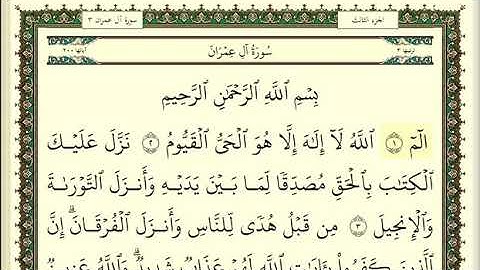 الجزء الثالث
سورة آل عمران ٣
ترتيبها ٣
سُورَةُ آلِ عِمْرَانَ
آياتها ٢٠٠
بِسْمِ ٱللَّهِ ٱلرَّحْمَٰنِ ٱلرَّحِيمِ
الٓمٓ ١ ٱللَّهُ لَآ إِلَٰهَ إِلَّا هُوَ ٱلْحَىُّ ٱلْقَيُّومُ ٢ نَزَّلَ عَلَيْكَ
ٱلْكِتَٰبَ بِٱلْحَقِّ مُصَدِّقًا لِّمَا بَيْنَ يَدَيْهِ وَأَنزَلَ ٱلتَّوْرَىٰةَ
وَٱلْإِنجِيلَ ٣ مِن قَبْلُ هُدًى لِّلنَّاسِ وَأَنزَلَ ٱلْفُرْقَانَ ۗ إِنَّ
ٱلَّذِينَ كَفَرُوا۟ بِـَٔايَٰتِ ٱللَّهِ لَهُمْ عَذَابٌ شَدِيدٌ ۗ وَٱللَّهُ عَزِيزٌ